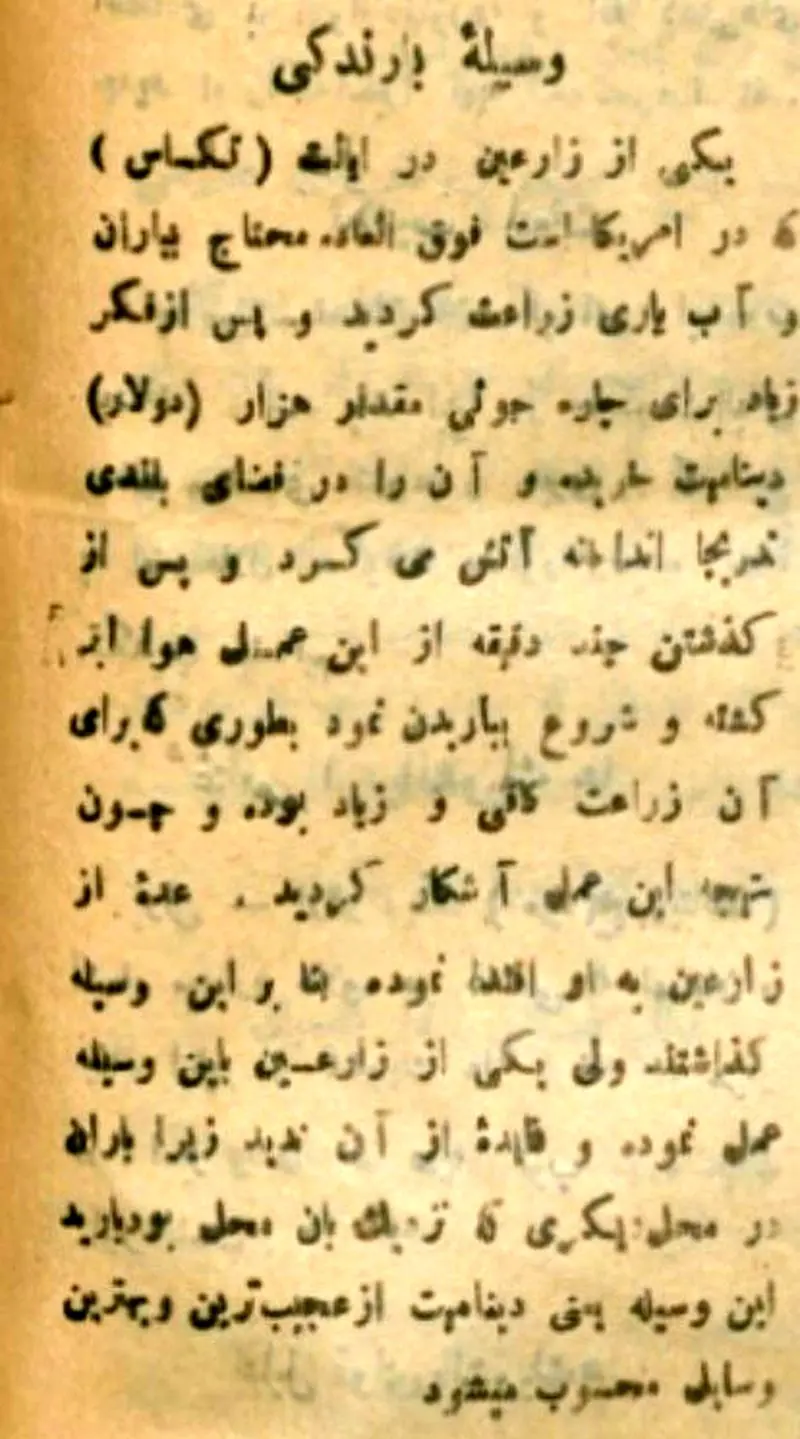 وسیلهٔ بارندکی
یکی از زارعین در ایالت ( تکساس )
که در امریکا است فوق العاده محتاج بباران
و آب یاری زراعت کردید و پس ازفکر
زیاد برای چاره جوئی مقدار هزار (دولار)
دینامیت خریده و آن را در فضای بلندی
تدریجا انداخته آتش می کرد و پس از
کذشتن چند دقیقه از این عمل هوا ابر
کشته و شروع بباریدن نمود بطوری که برای
آن زراعت کافی و زیاد بوده و چون
نتیجه این عمل آشکار کردید . عدهٔ از
زارعین به او اقتدا نموده بنا بر این وسیله
کذاشتند ولی یکی از زارعین باین وسیله
عمل نموده و فایدهٔ از آن ندید زیرا باران
در محل دیکری که نزدیك بان محل بودبارید
این وسیله یعنی دینامیت ازعجیب‌ترین وبهترین
وسایل محسوب میشود